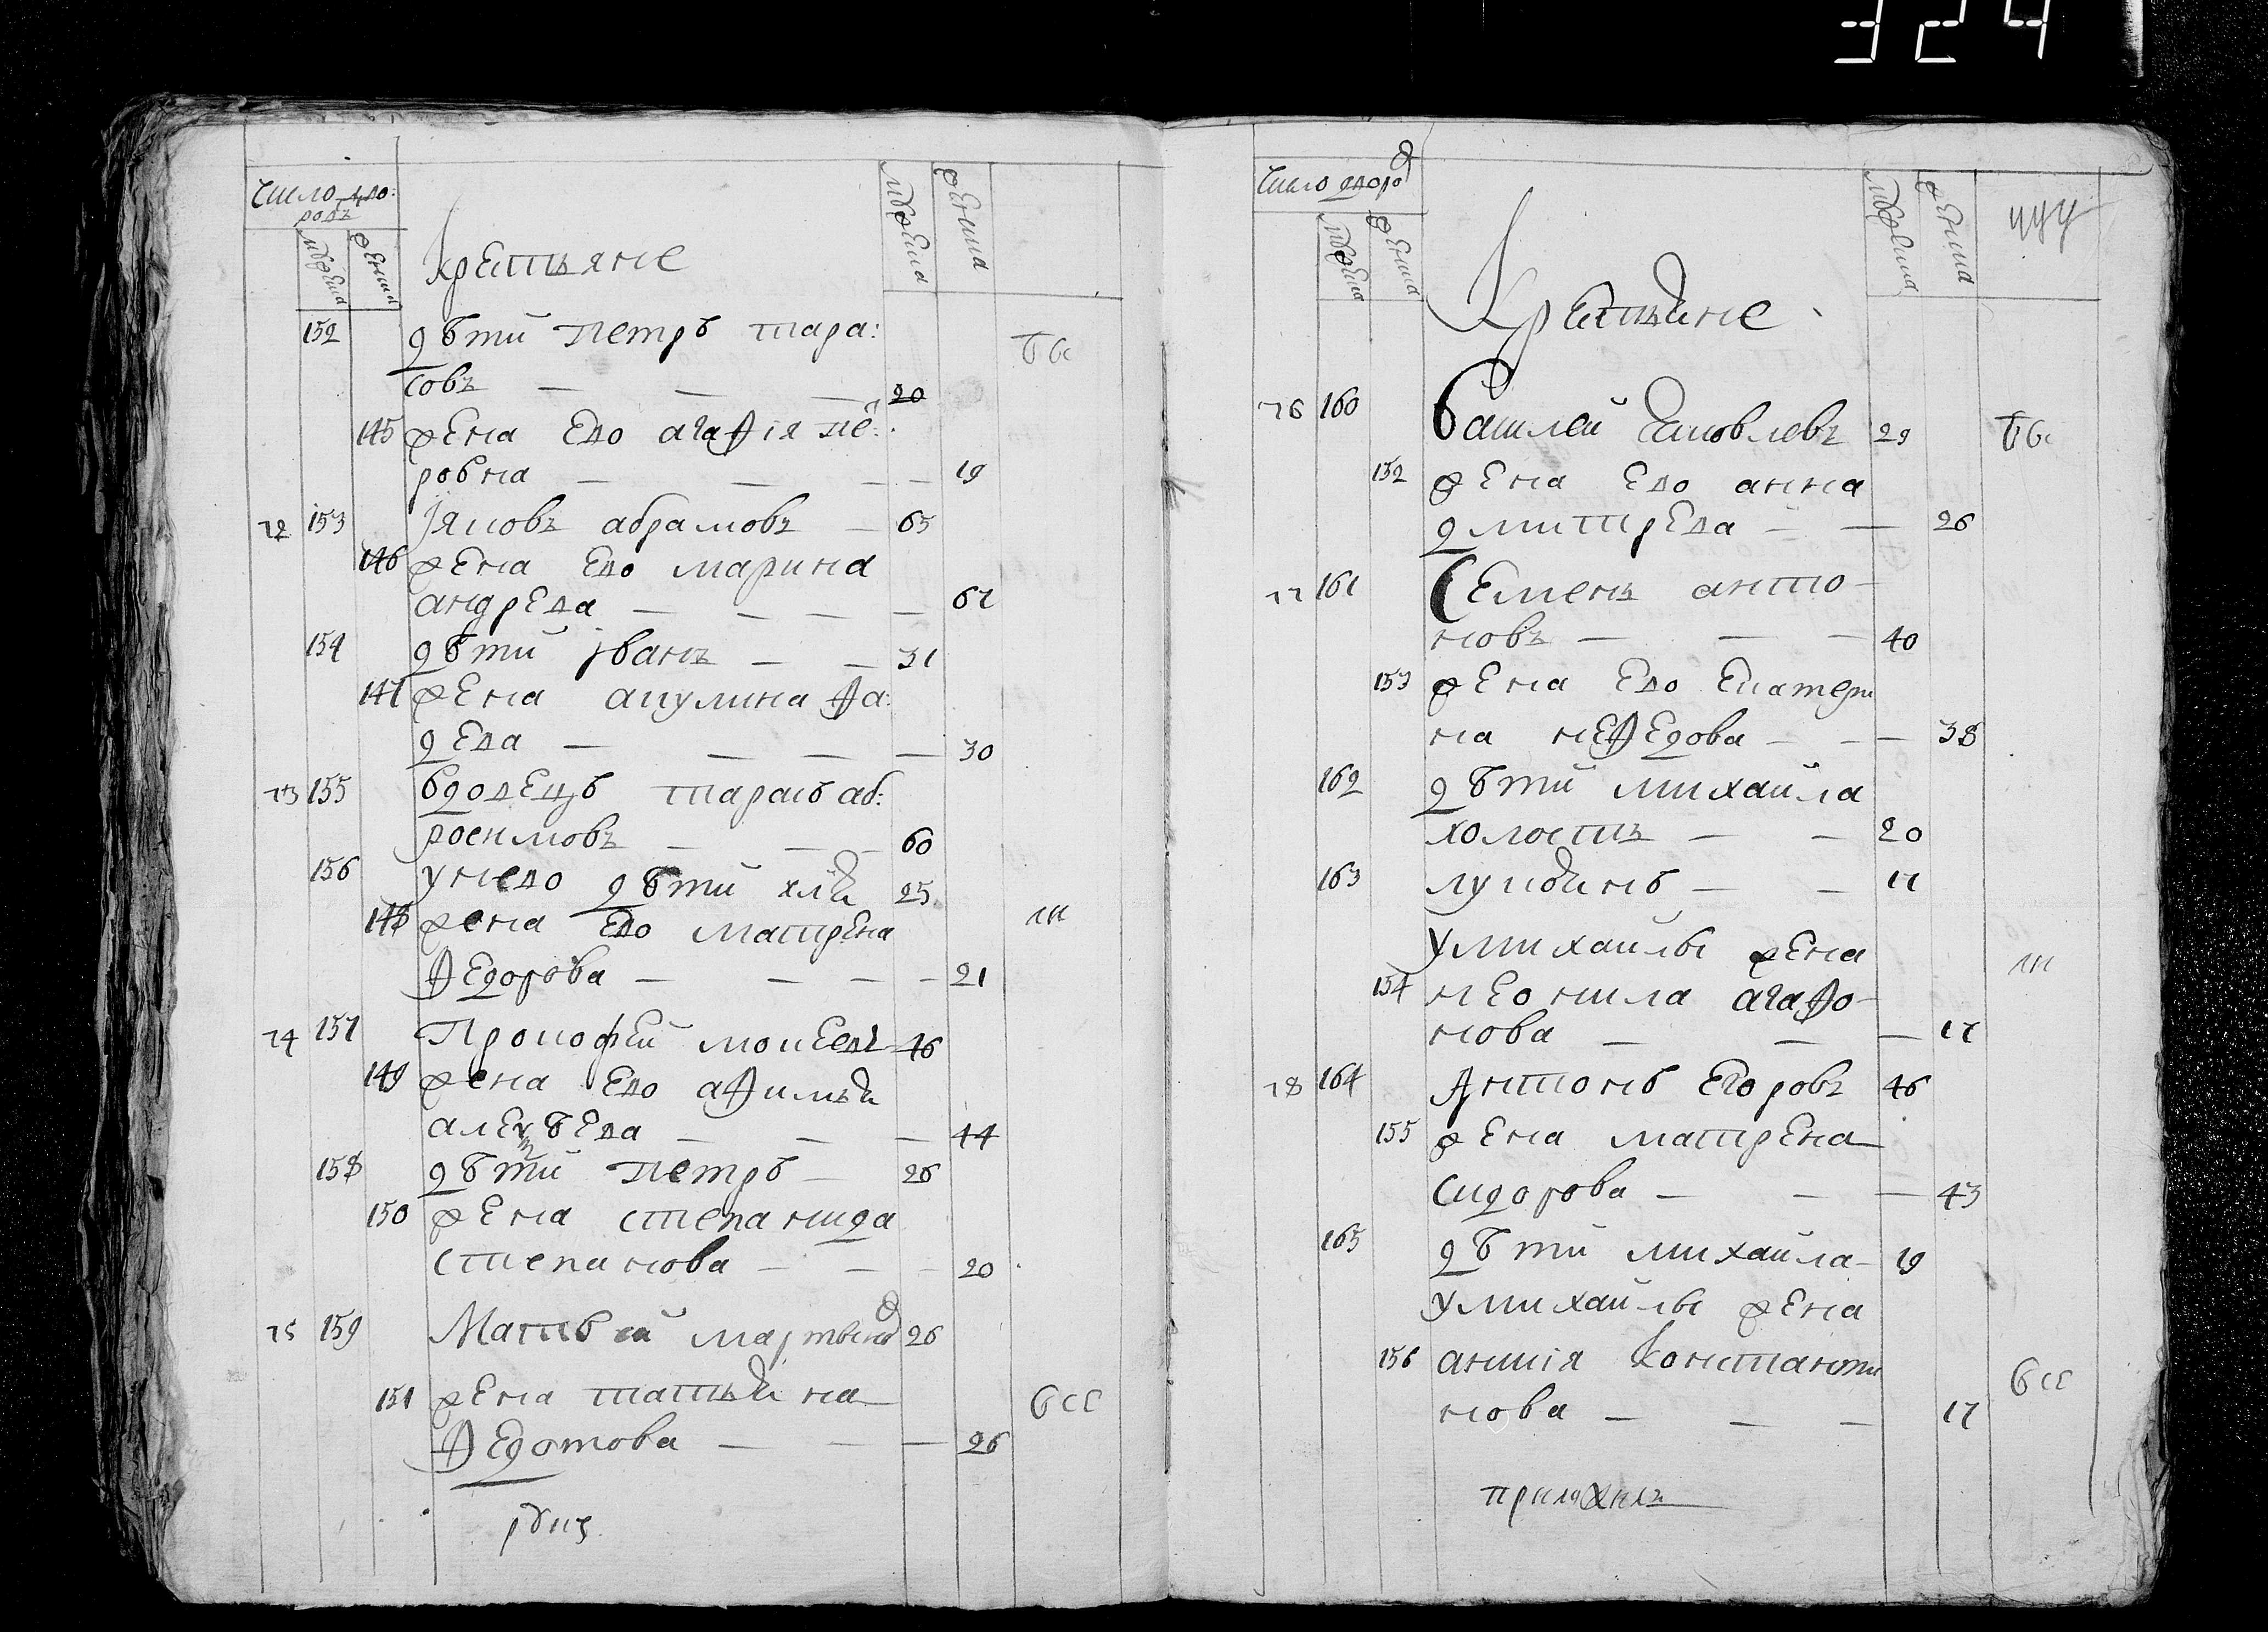 324
Число дво:
ровъ
мужеска
женска
Крестьяне
мужеска
женска
152 дѣти Петръ тара:
совъ — — — 20
145 жена ево агафiя пе:
ровна — — — 19
72 153 Iяковъ абрамовъ — 65
146 жена ево марина
андрева — — — 67
154 дѣти iванъ — — 31
147 жена акулина фа:
дева — — — 30
73 155 вдовецъ тарасъ аб:
росимовъ — — 60
156 у нево дѣти илья 25
148 жена ево матрена
федорова — — — 21
74 157 Прокофей мокеевъ 46
149 жена ево афимья
алексѣева — — — 44
158 дѣти Петръ — 26
150 жена степанида
степанова — — 20
75 159 Матвѣй мартыновъ 26
151 жена татьяна
федотова — — — 26
Число дворовъ
мужеска
женска
Крестьяне
мужеска
женска
76 160 Василей Яковлевъ 29
152 жена ево анна
дмитрева — — 26
77 161 Семенъ анто-
новъ — — — 40
153 жена ево Екатери
на нефедова — — — 38
162 дѣти михайла
холостъ — — 20
163 лукьянъ — — 17
у михайлы жена
154 неонила агафо-
нова — — — 17
78 164 Антонъ Егоровъ 46
155 жена матрена
сидорова — — — 43
165 дѣти михайла — 19
у михайлы жена
156 аксинiя Константи
нова — — — 17
приложилъ